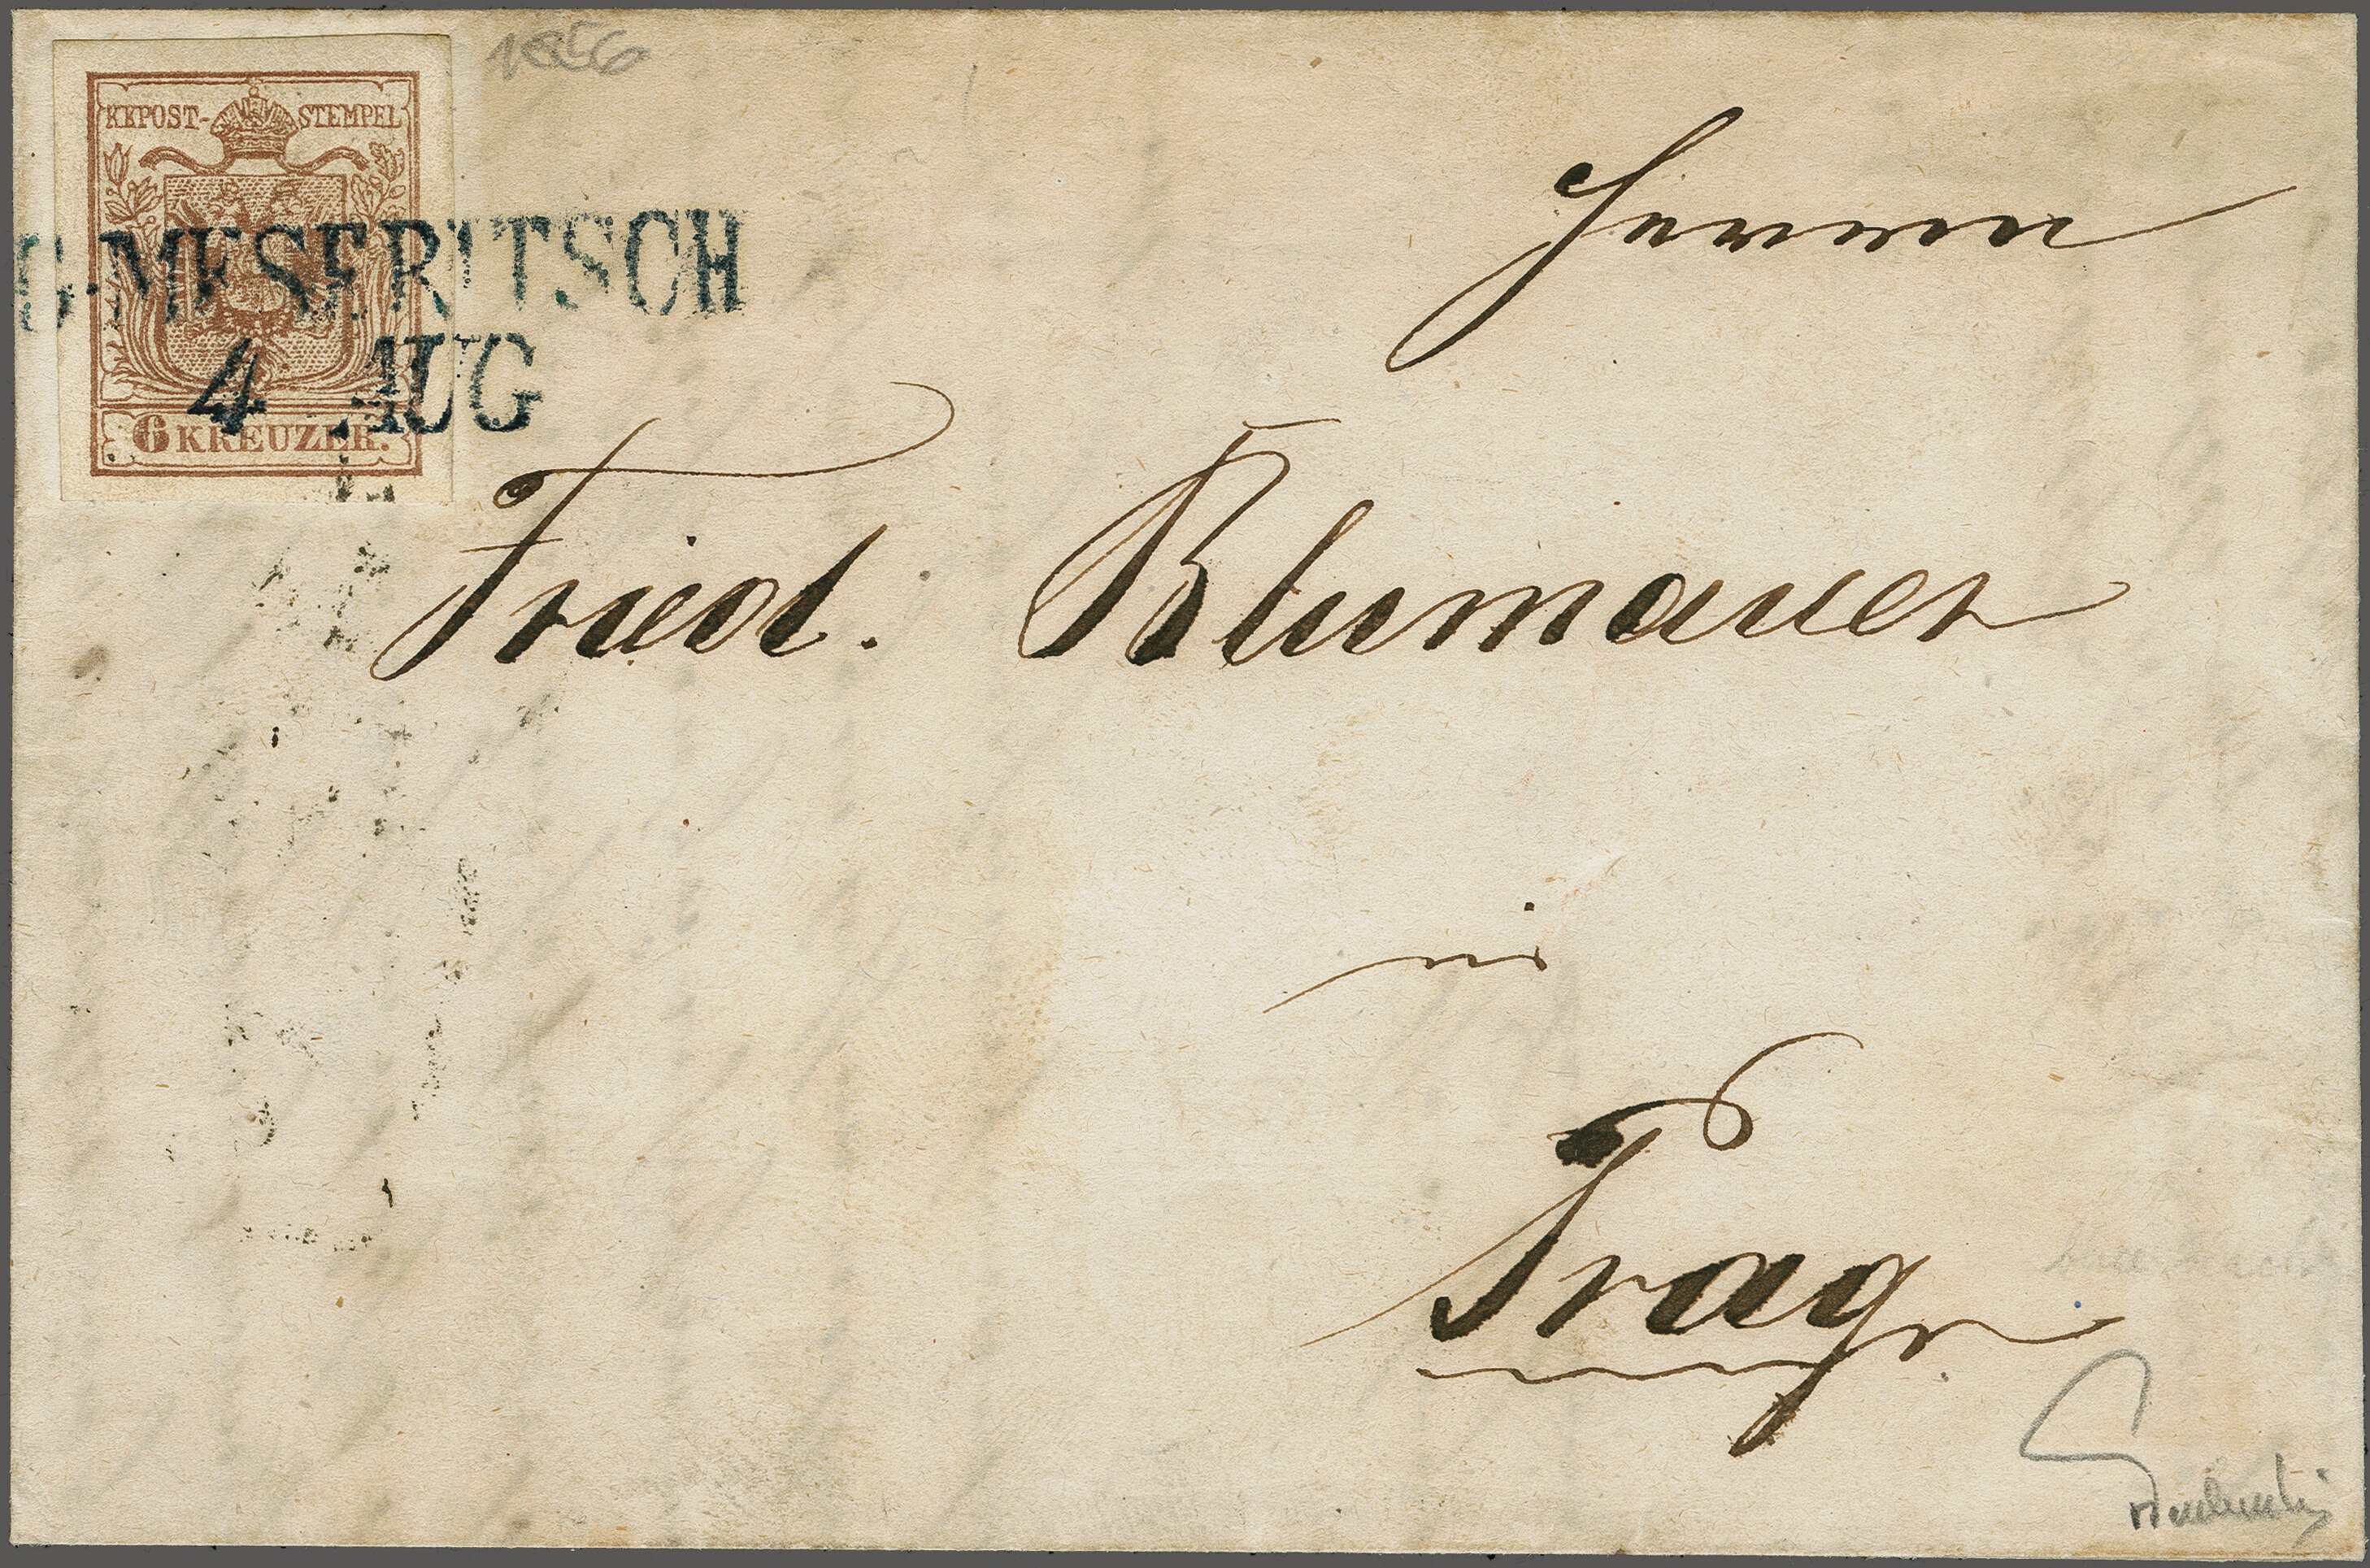 1856
KKPOST-STEMPEL
G. MESERITSCH
4 AUG
6 KREUZER.
Herrn
Fried. Blumauer
in
Prag